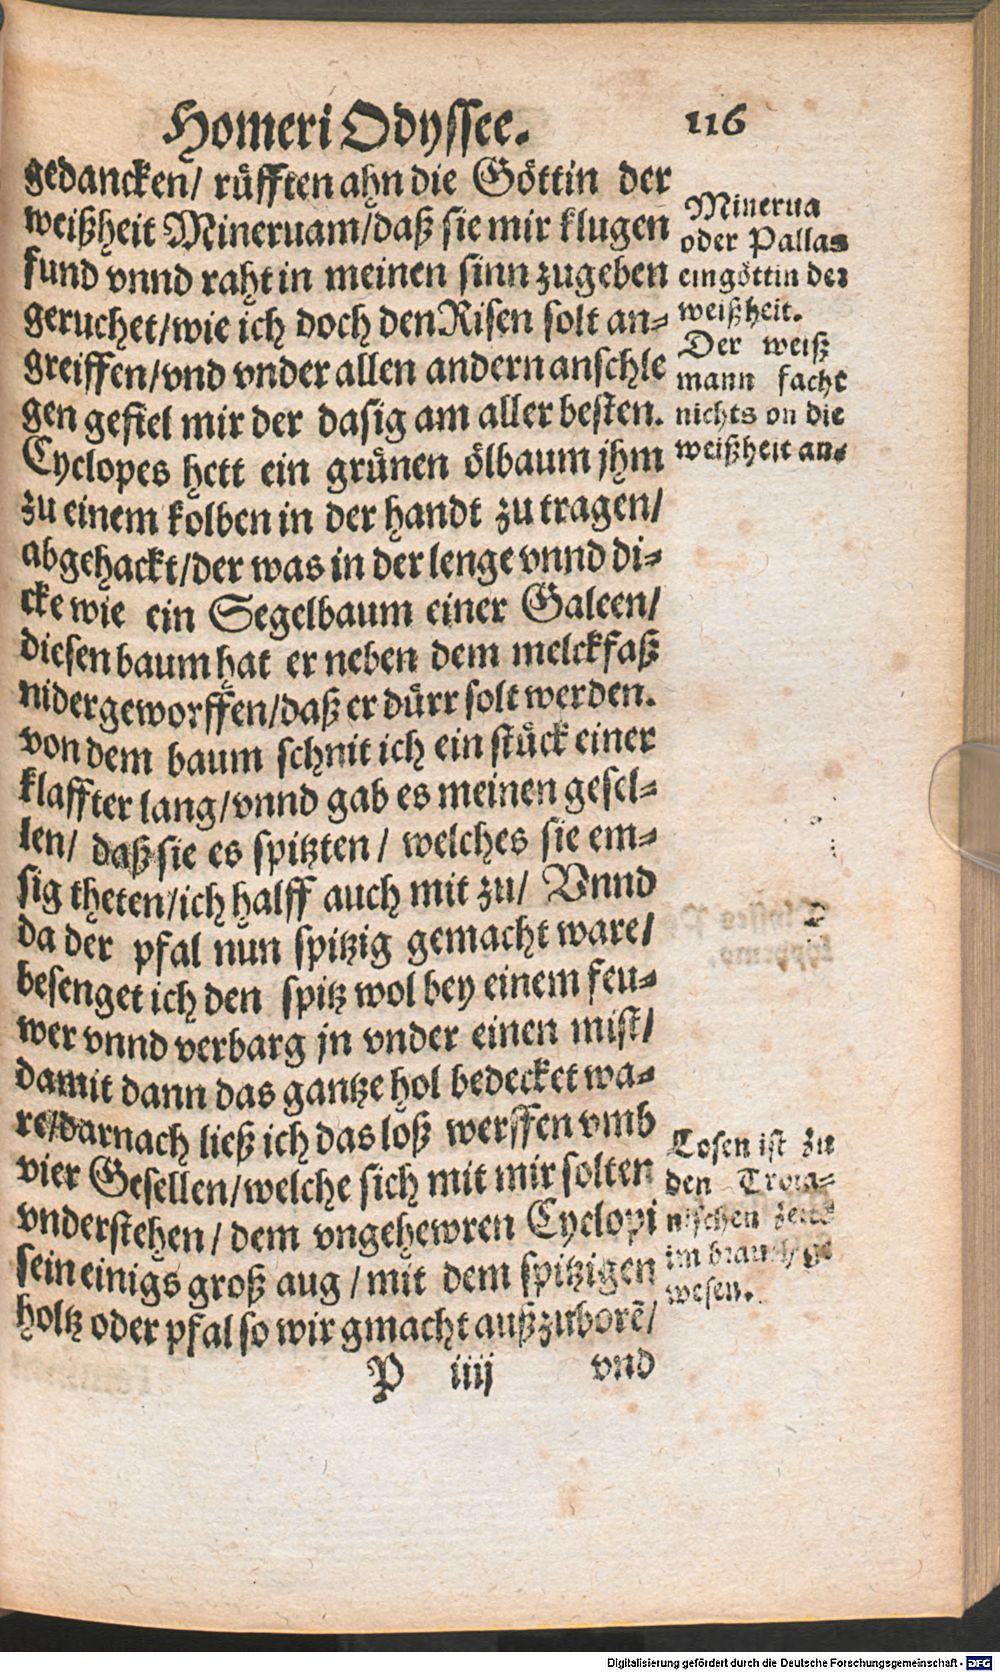 Homeri Odyssee. 116
gedancken/ rüfften ahn die Göttin der
weißheit Mineruam/daß sie mir klugen
fund vnnd raht in meinen sinn zugeben
geruchet/wie ich doch den Risen solt an-
greiffen/vnd vnder allen andern anschle
gen gefiel mir der dasig am aller besten.
Cyclopes hett ein grünen ölbaum jhm
zu einem kolben in der handt zu tragen/
abgehackt/der was in der lenge vnnd di-
cke wie ein Segelbaum einer Galeen/
diesen baum hat er neben dem melckfaß
nidergeworffen/daß er dürr solt werden.
von dem baum schnit ich ein stück einer
klaffter lang/vnnd gab es meinen gesel-
len/ daß sie es spitzten/ welches sie em-
sig theten/ich halff auch mit zu/ Vnnd
da der pfal nun spitzig gemacht ware/
besenget ich den spitz wol bey einem feu-
wer vnnd verbarg jn vnder einen mist/
damit dann das gantze hol bedecket wa-
re/darnach ließ ich das loß werffen vmb
vier Gesellen/welche sich mit mir solten
vnderstehen/ dem vngehewren Cyclopi
sein einigs groß aug/mit dem spitzigen
holtz oder pfal so wir gmacht außzuborē/
P iiij vnd
Minerua
oder Pallas
eingöttin der
weißheit.
Der weiß
mann facht
nichts on die
weißheit an.
Losen ist zu
den Troia-
nischen zeitē
im brauch ge
wesen.
Digitalisierung gefördert durch die Deutsche Forschungsgemeinschaft - DFG